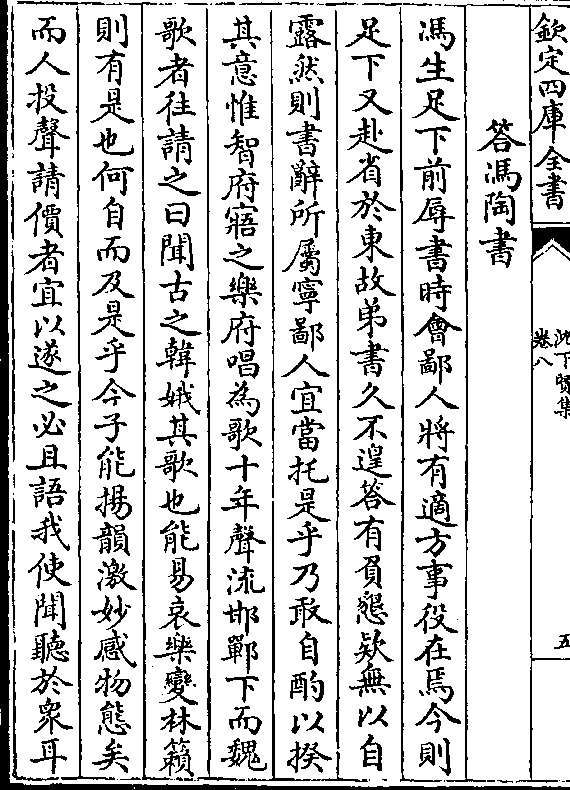 欽定四庫全書
沈下賢集
卷八
五
答馮陶書
馮生足下前辱書時會鄙人將有適方事役在焉今則
足下又赴省於東故弟書久不遑答有負懇欵無以自
露然則書辭所屬寧鄙人宜當托是乎乃敢自酌以揆
其意惟智府寤之樂府唱為歌十年聲流邯鄲下而魏
歌者往請之曰聞古之韓娥其歌也能易哀樂變林籟
則有是也何自而及是乎今子能揚韻激妙感物態矣
而人投聲請價者宜以遂之必且語我使聞聽於衆耳